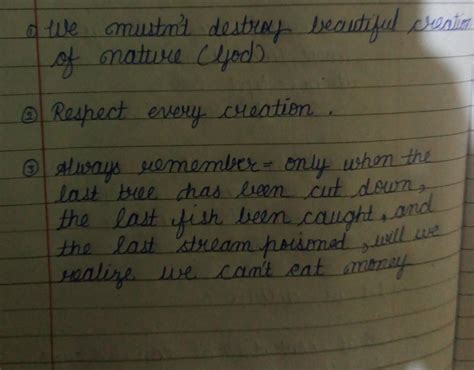 ① We mustn't destroy beautiful creation
of nature (God)
② Respect every creation.
③ Always remember = only when the
last tree has been cut down,
the last fish been caught, and
the last stream poisoned, will we
realize we can't eat money